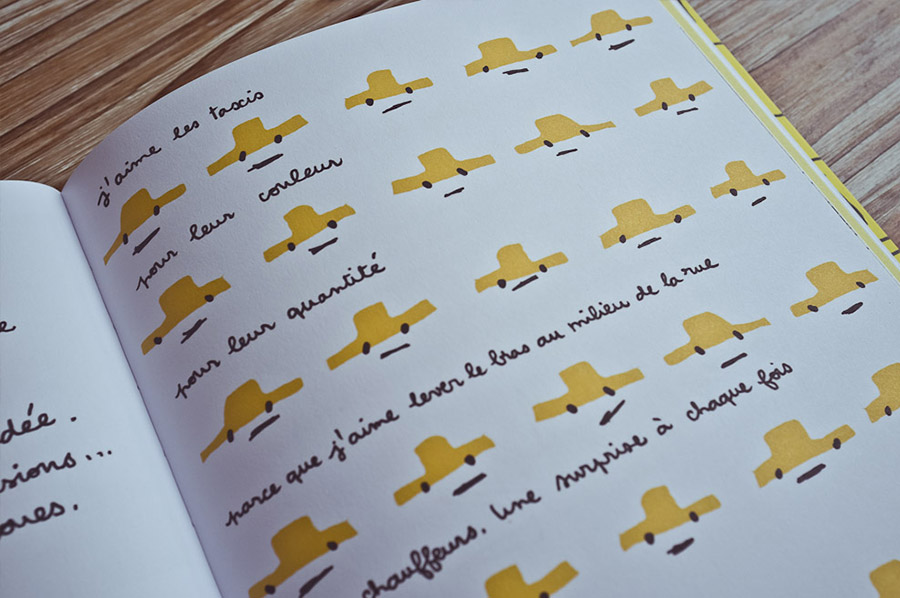 j'aime les taxis
pour leur couleur
pour leur quantité
parce que j'aime lever le bras au milieu de la rue
chauffeurs. Une surprise à chaque fois